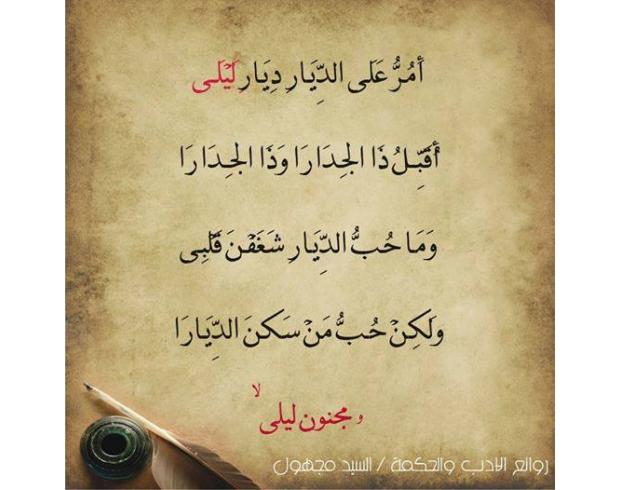 أَمُرُّ عَلَى الدِّيَارِ دِيَارِ لَيْلَى
أُقَبِّلُ ذَا الجِدَارَا وَذَا الجِدَارَا
وَمَا حُبُّ الدِّيَارِ شَغَفْنَ قَلْبِى
ولَكِنْ حُبُّ مَنْ سَكَنَ الدِّيَارَا
مجنون ليلى
روائع الادب والحكمة / السيد مجهول